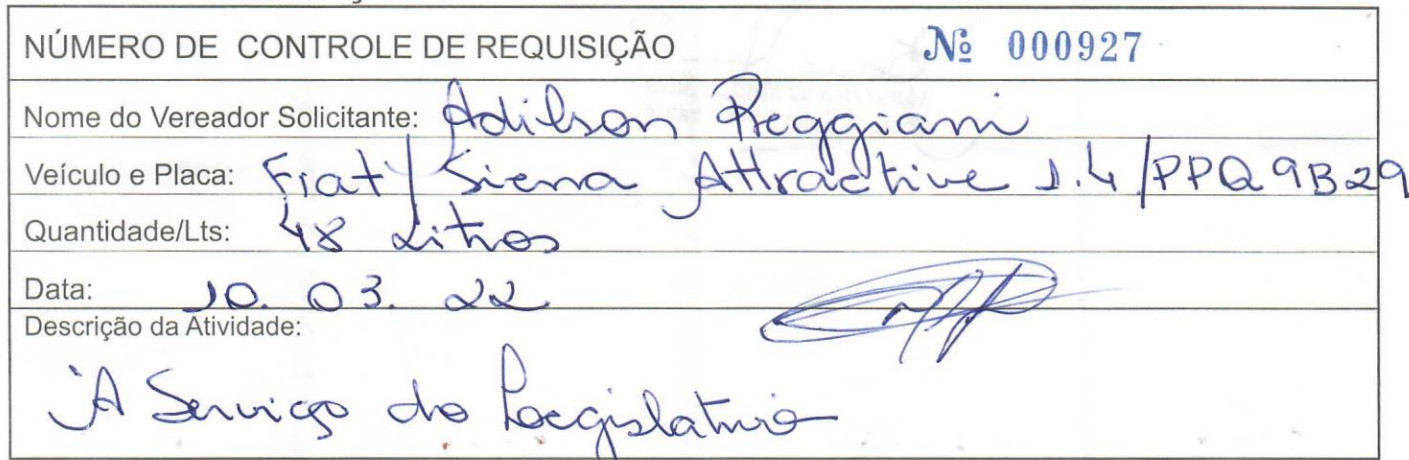 NÚMERO DE CONTROLE DE REQUISIÇÃO Nº 000927
Nome do Vereador Solicitante: Adilson Reggiani
Veículo e Placa: Fiat/Siena Attractive 1.4/PPQ9B29
Quantidade/Lts: 48 Litros
Data: 10. 03. 22
Descrição da Atividade:
À Serviço do Legislativo